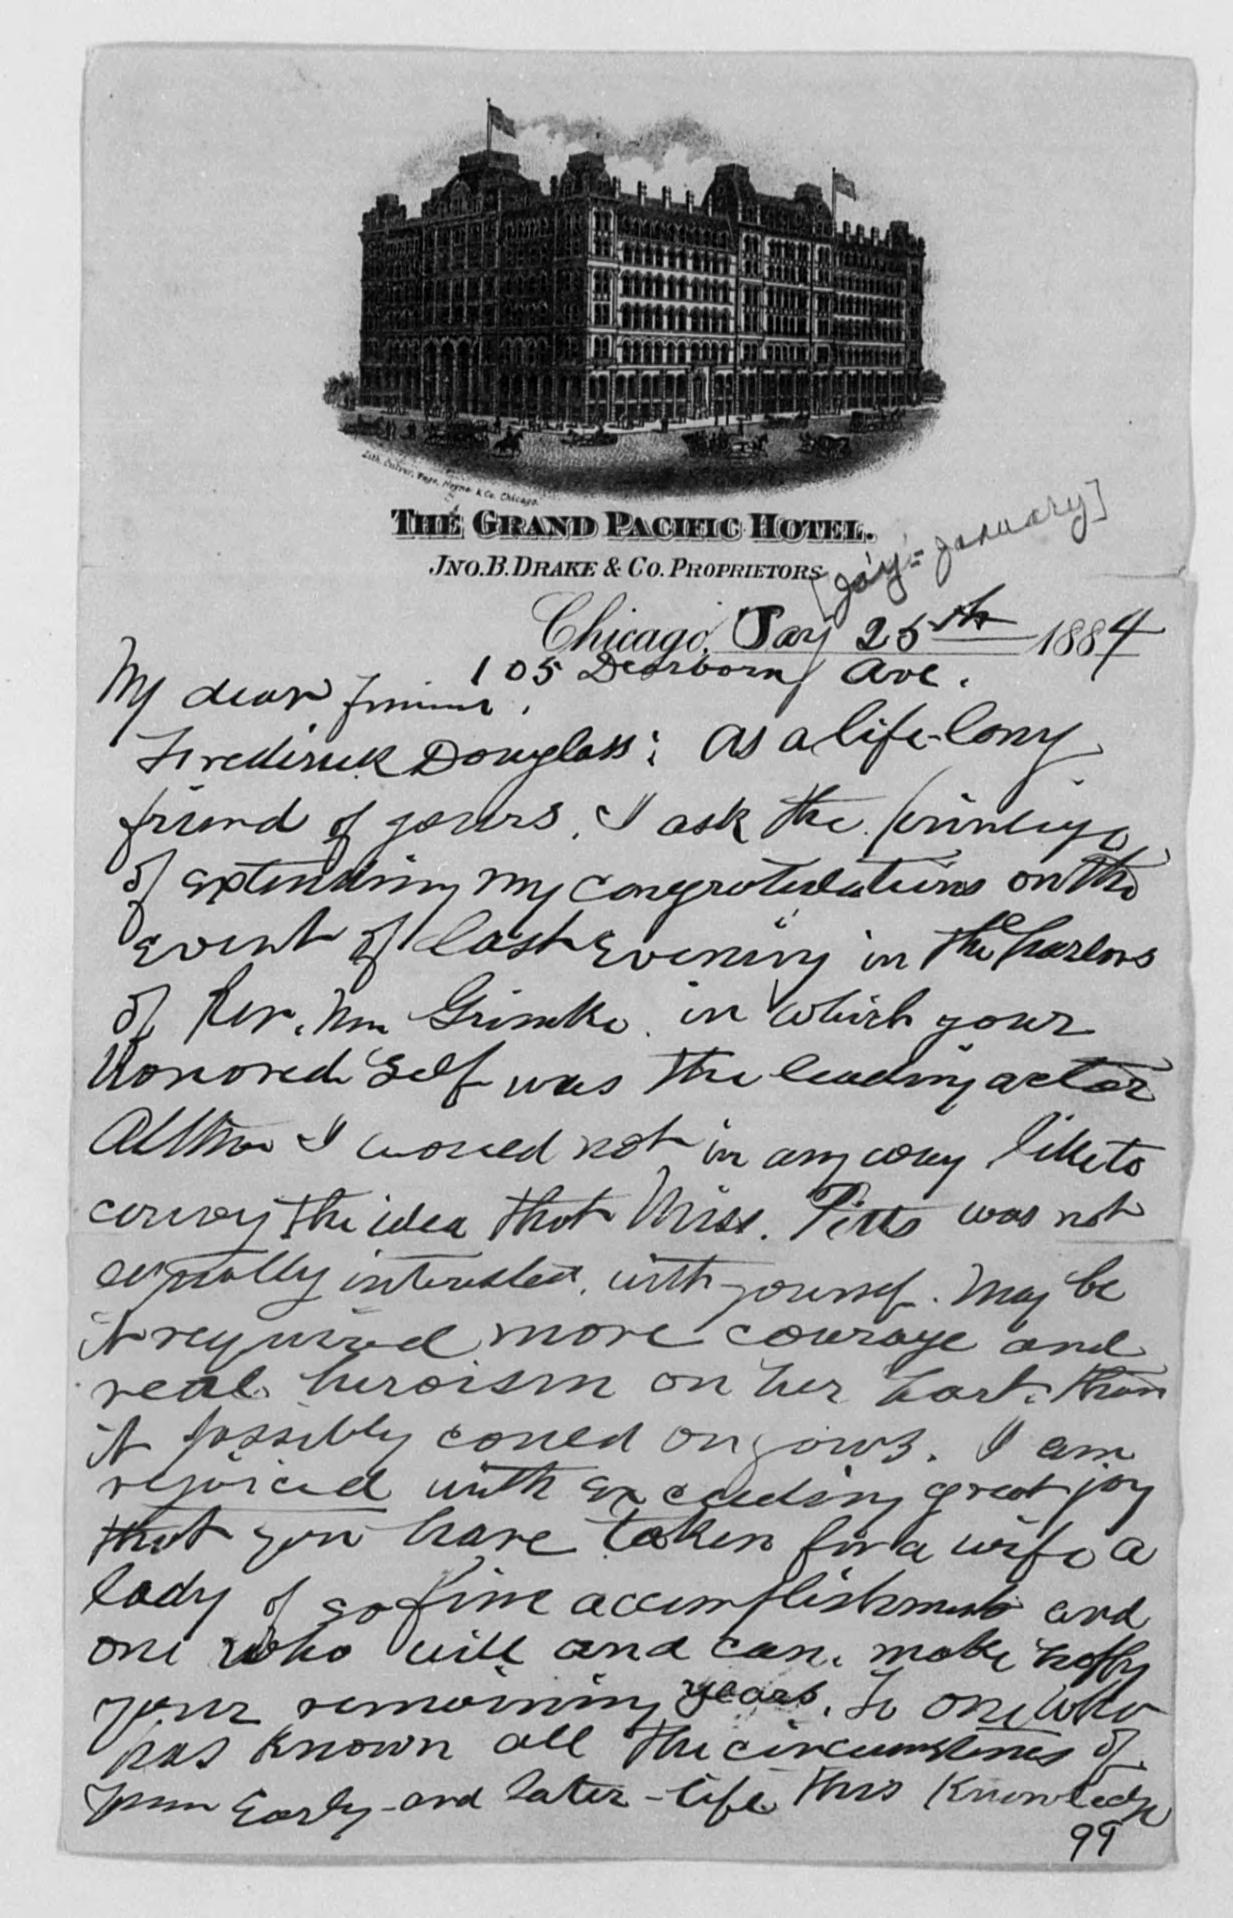 Lith. Culver, Page, Hoyne & Co. Chicago.
THE GRAND PACIFIC HOTEL.
JNO. B. DRAKE & CO. PROPRIETORS
[Ja'y' = January]
Chicago, Jay 25th 1884
105 Dearborn Ave.
My dear friend,
Frederick Douglass; As a life-long
friend of yours, I ask the privilege
of extending my congratulations on the
event of last evening in the parlors
of Rev. Mr Grimke in which your
Honored Self was the leading actor
Altho I would not in any way like to
convey the idea that Miss. Pitts was not
equally interested with yourself. May be
it required more courage and
real heroism on her part than
it possibly could on yours. I am
rejoiced with exceeding great joy
that you have taken for a wife a
lady of so fine accomplishments and
one who will and can make happy
your remaining years. To one who
has known all the circumstances of
your Early-and later-life this Knowledge
99